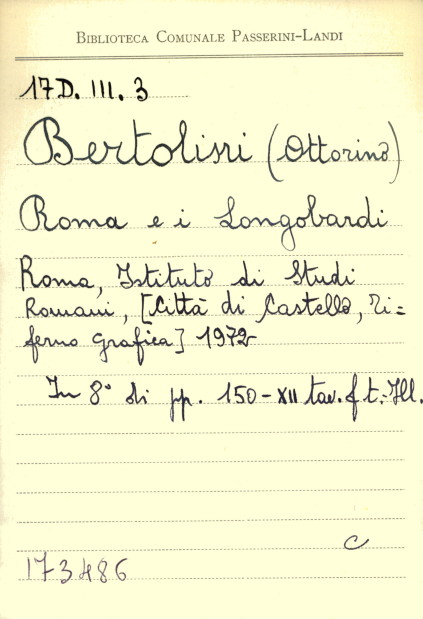 BIBLIOTECA COMUNALE PASSERINI-LANDI
17D. III. 3
Bertolini (Ottorino)
Roma e i Longobardi
Roma, Istituto di Studi
Romani, [Città di Castello, Ti=
ferno Grafica] 1972
In 8° di pp. 150-XII tav. f. t.-Ill.
C
173486